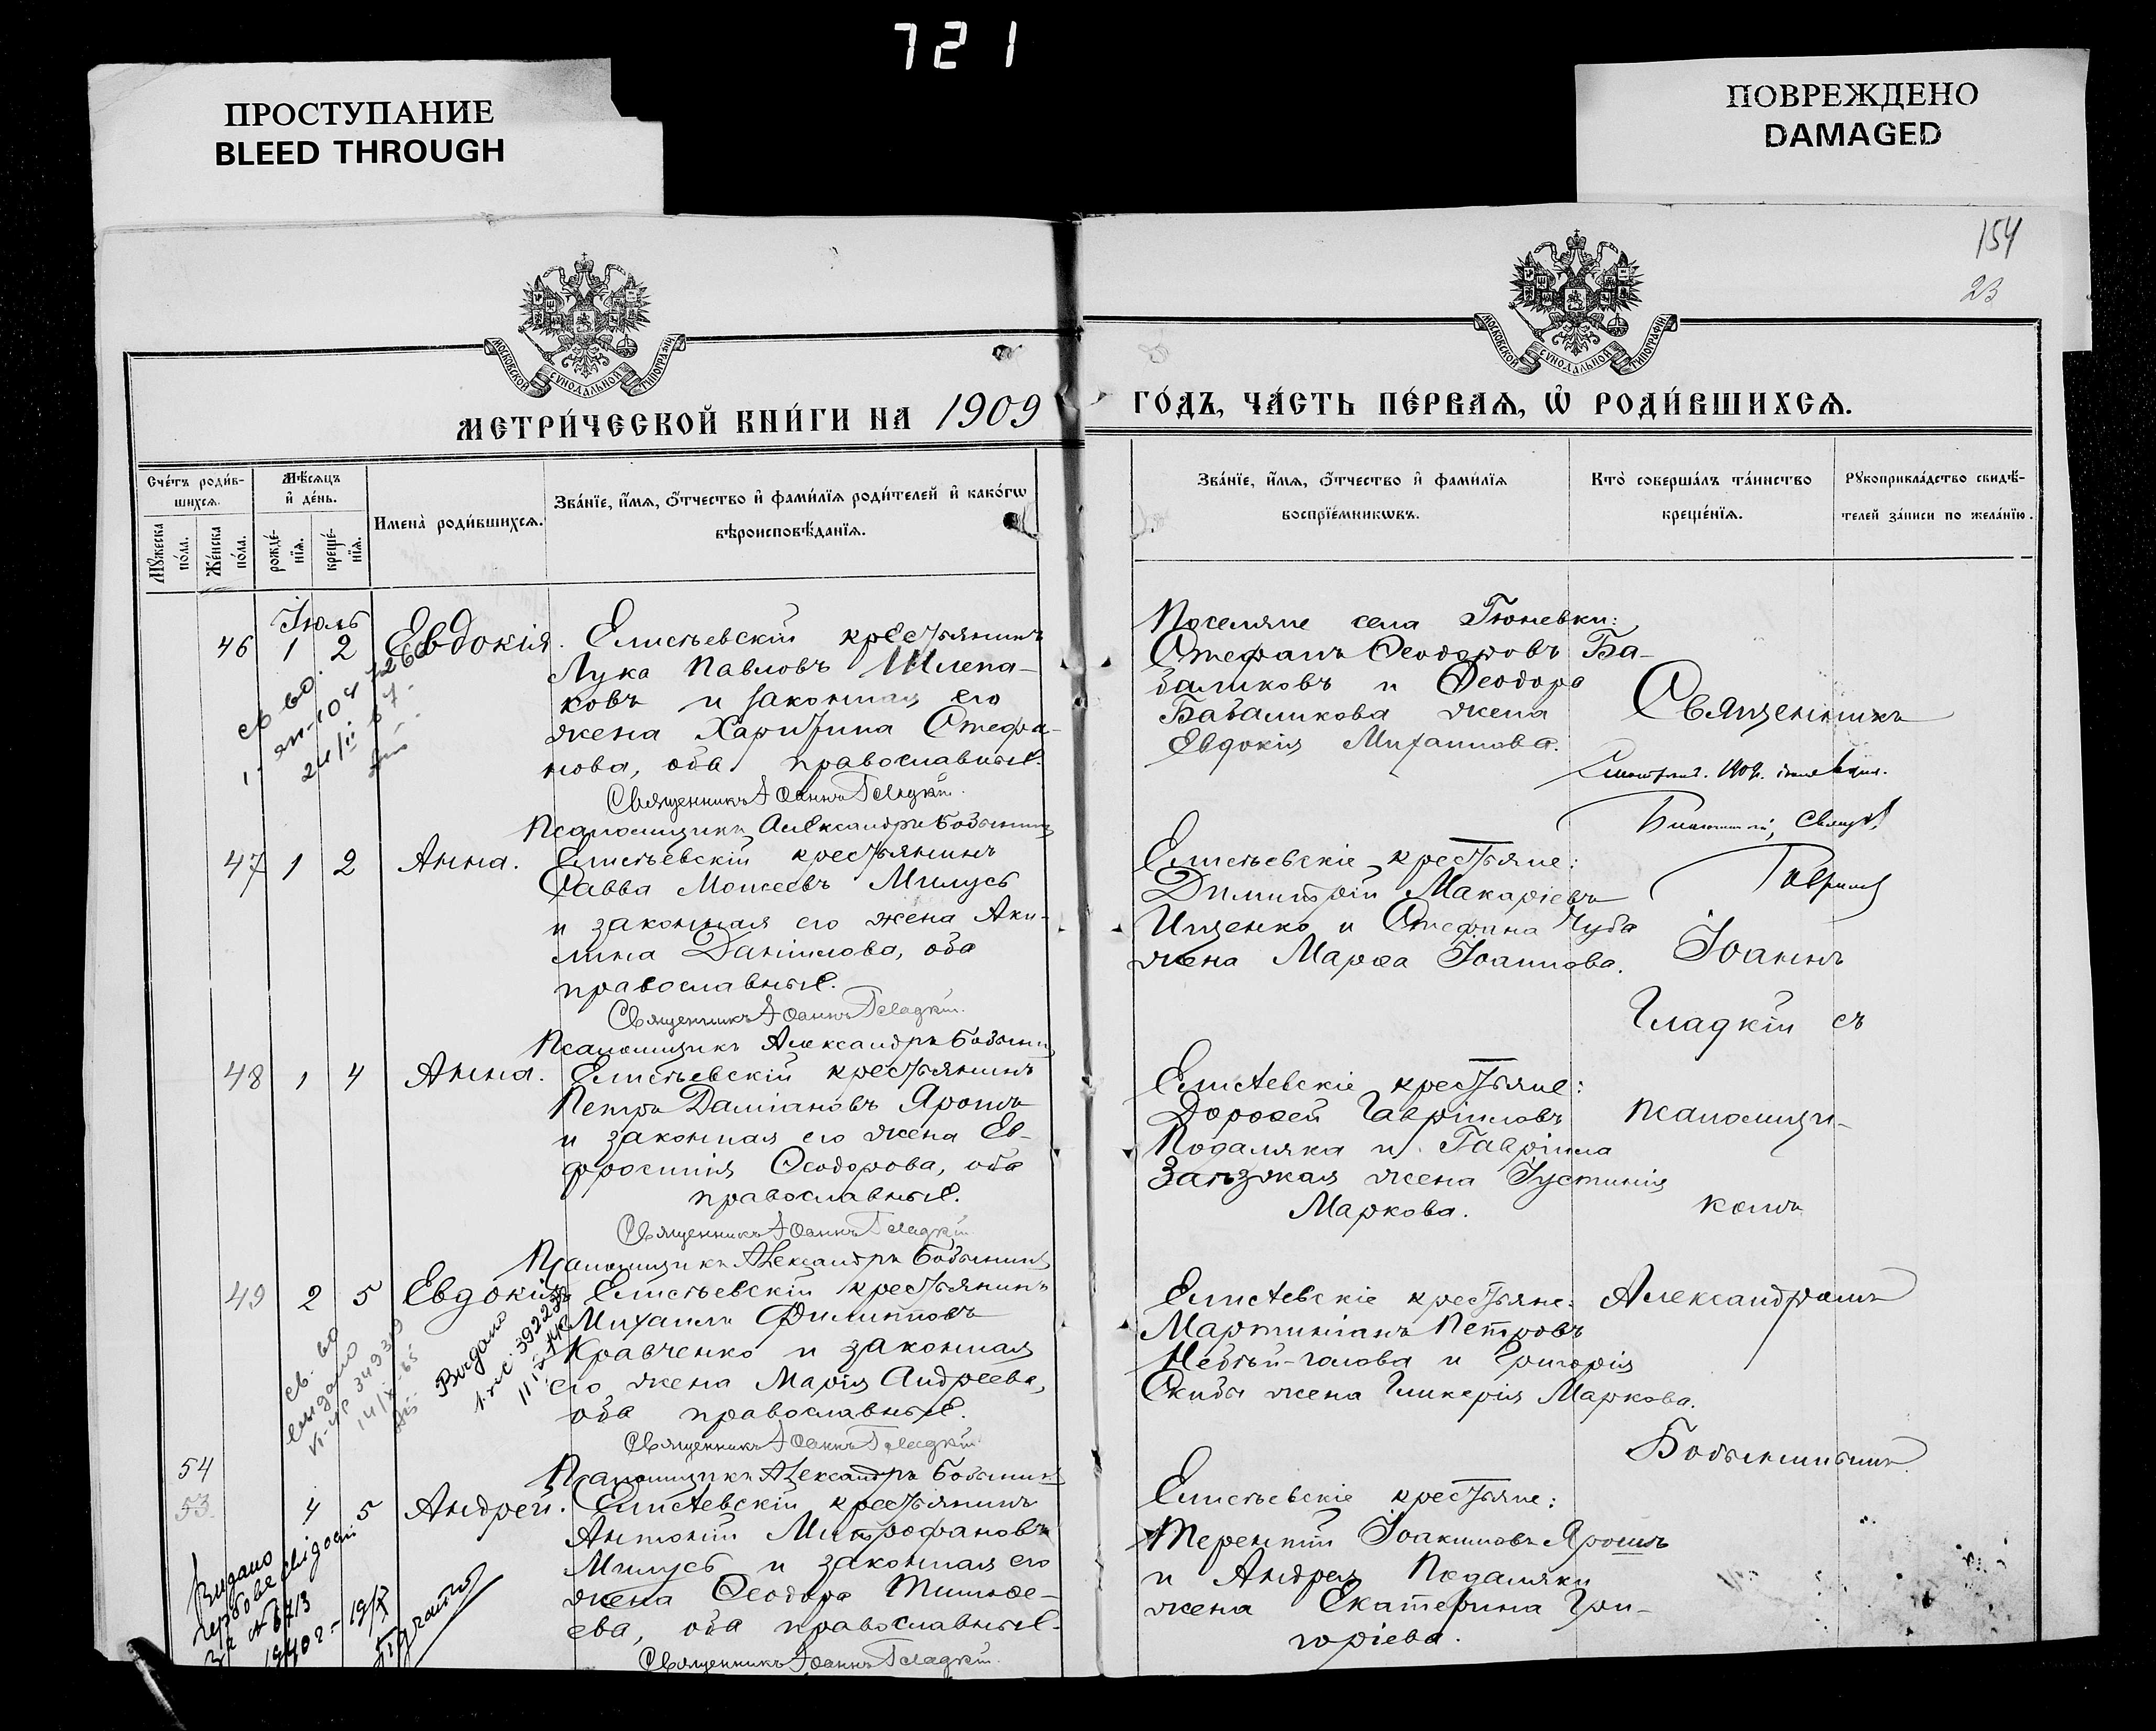 721
ПРОСТУПАНИЕ
BLEED THROUGH
ПОВРЕЖДЕНО
DAMAGED
154
23
МОСКОВСКОЙ СУНОДАЛЬНОЙ ТИПОГРАФІИ
МОСКОВСКОЙ СУНОДАЛЬНОЙ ТИПОГРАФІИ
МЕТРИ́ЧЕСКОЙ КНИ́ГИ НА 1909
ГО́ДЪ, ЧА́СТЬ ПЕ́РВАѦ, Ѡ҆ РОДИ́ВШИХСѦ.
Сче́тъ роди́в-
шихсѧ.
Мꙋ́жеска по́ла.
Же́нска по́ла.
Мѣ́сѧцъ
и҆ де́нь.
рожде́-
нїѧ.
креще́-
нїѧ.
Имена̀ роди́вшихсѧ.
Зва́нїе, и҆́мѧ, ѻ҆́тчество и҆ фами́лїѧ роди́телей и҆ како́гѡ
вѣроисповѣ́данїѧ.
Зва́нїе, и҆́мѧ, ѻ҆́тчество и҆ фами́лїѧ
воспрїе́мникѡвъ.
Кто̀ соверша́лъ та́инство
креще́нїѧ.
Рꙋкоприкла́дство свидѣ́-
телей за́писи по жела́нїю.
Іюль
46 1 2 Евдокія. Елисѣевскій крестьянинъ
Лука Павловъ Шлепа-
ковъ и законная его
жена Харитина Стефа-
нова, оба православные.
Священникъ Іоаннъ Гладкій.
Псаломщикъ Александръ Бодынинъ
Поселяне села Гюневки:
Стефанъ Ѳеодоровъ Ба-
баликовъ и Ѳеодора
Бабаликова жена
Евдокія Михаилова.
47 1 2 Анна. Елисѣевскій крестьянинъ
Савва Моисеевъ Милусь
и законная его жена Аки-
лина Даніилова, оба
православные.
Священникъ Іоаннъ Гладкій.
Псаломщикъ Александръ Бодынинъ
Елисѣевскіе крестьяне:
Димитрій Макаріевъ
Ищенко и Стефана Чуба
жена Марѳа Іоаннова.
48 1 4 Анна. Елисѣевскій крестьянинъ
Петръ Даміановъ Ярошъ
и законная его жена Ев-
фросинія Ѳеодорова, оба
православные.
Священникъ Іоаннъ Гладкій
Псаломщикъ Александръ Бодынинъ
Елисѣевскіе крестьяне:
Дороѳей Гавріиловъ
Подаляка и Гавріила
Заѣзжая жена Іустинія
Маркова.
49 2 5 Евдокія Елисѣевскій крестьянинъ
Михаилъ Филипповъ
Кравченко и законная
его жена Марія Андреева,
оба православные.
Священникъ Іоаннъ Гладкій
Псаломщикъ Александръ Бодынинъ
Елисѣевскіе крестьяне:
Мартиніанъ Петровъ
Непѣй-голова и Григорія
Скибы жена Гликерія Маркова.
54
53. 4 5 Андрей. Елисѣевскій крестьянинъ
Антоній Митрофановъ
Милусь и законная его
жена Ѳеодора Тимоѳе-
ева, оба православные.
Священникъ Іоаннъ Гладкій.
Елисѣевскіе крестьяне:
Терентій Іоакимовъ Ярошъ
и Андрея Подаляки
жена Екатерина Гри-
горіева.
Священникъ
Іоаннъ
Гладкій съ
псаломщи-
комъ
Александромъ
Бодынинымъ.